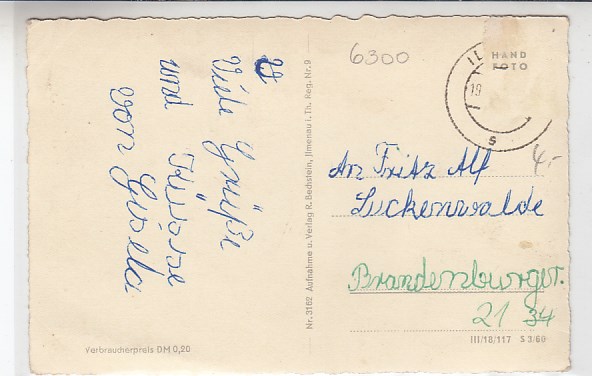 Viele Grüße
und Küsse
von Gisela
Verbraucherpreis DM 0,20
Nr. 3162 Aufnahme u. Verlag R. Bechstein, Ilmenau i. Th. Reg. Nr. 9
6300
HAND
FOTO
IL
19
s
4,-
An Fritz Alf
Luckenwalde
Brandenburgstr.
21 34
III/18/117 S 3/60